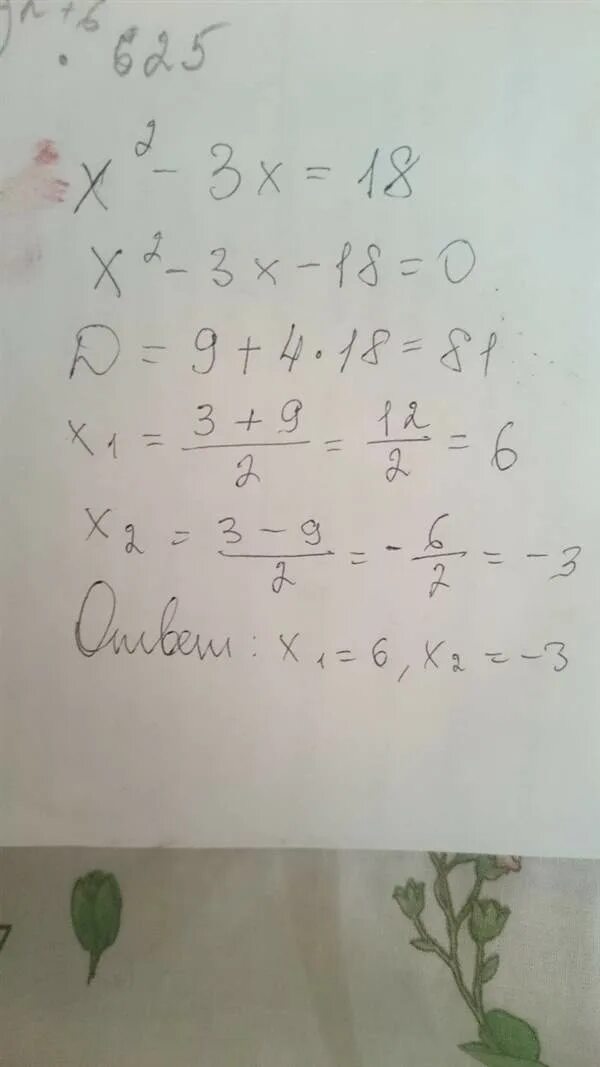 +6
· 625
x² - 3x = 18
x² - 3x - 18 = 0
D = 9 + 4 · 18 = 81
x₁ = (3 + 9)/2 = 12/2 = 6
x₂ = (3 - 9)/2 = -6/2 = -3
Ответ: x₁ = 6, x₂ = -3